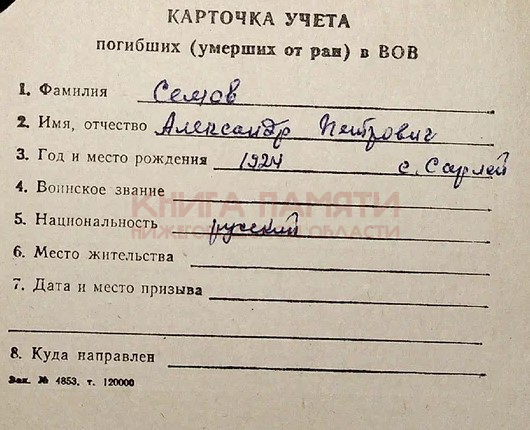 КАРТОЧКА УЧЕТА
погибших (умерших от ран) в ВОВ
1. Фамилия Семов
2. Имя, отчество Александр Петрович
3. Год и место рождения 1924 с. Сарлей
4. Воинское звание
КНИГА ПАМЯТИ
5. Национальность русский
НИЖЕГОРОДСКОЙ ОБЛАСТИ
6. Место жительства
7. Дата и место призыва
8. Куда направлен
Зак. № 4853. т. 120000